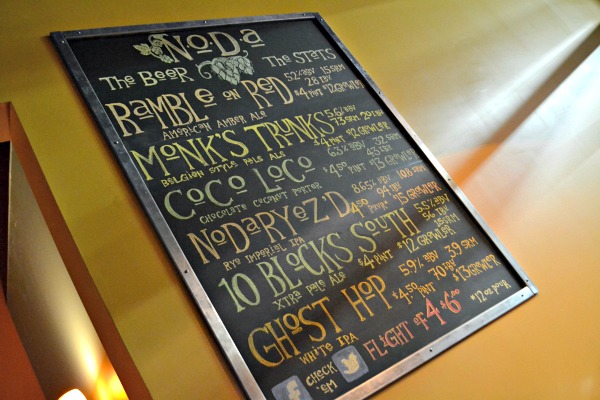 NoDa
The Beer The Stats
Ramble on Red 5.2% ABV 15 SRM
28 IBU
American Amber Ale $4 Pint $12 Growler
Monk's Trunks 5.6% ABV
13 SRM 20 IBU
Belgian Style Pale Ale $4 Pint $12 Growler
CoCo Loco 6.3% ABV 32 SRM
43 IBU
Chocolate Coconut Porter $4.50 Pint $13 Growler
NoDaRyeZ'D 8.65% ABV 10.8 SRM
94 IBU
Rye Imperial IPA $4.50 Pint* $15 Growler
10 Blocks South 5.5% ABV
56 IBU
Xtra Pale Ale $4 Pint $12 Growler
Ghost Hop 5.9% ABV 3.9 SRM
70 IBU
White IPA $4.50 Pint $13 Growler
Check 'Em Flight of 4 $6.00
*12 oz Pour